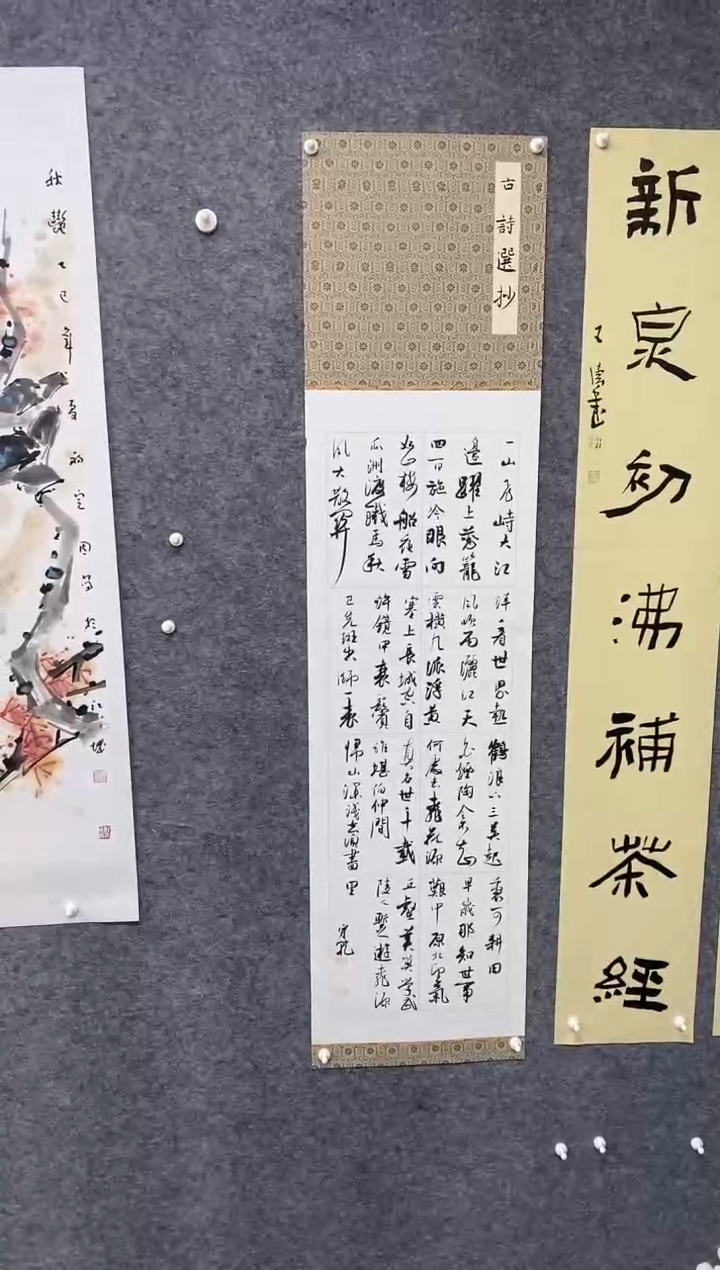 秋艷乙巳年之夏
古詩選抄
一山飛峙大江
邊躍上葱籠
四百旋冷眼向
洋々看世界熱
風吹雨灑江天
雲橫九派浮黃
鶴浪下三吳起
白煙陶令不知
何處去桃花源
裏可耕田
早歲那知世事
艱中原北望氣
如山樓船夜雪
瓜洲渡鐵馬秋
風大散關
塞上長城空自
許鏡中衰鬢
已先斑出師一表
真名世千載
誰堪伯仲間
歸山深淺去須盡
丘壑美莫學武
陵人暫遊桃源
里
新泉初沸補茶經